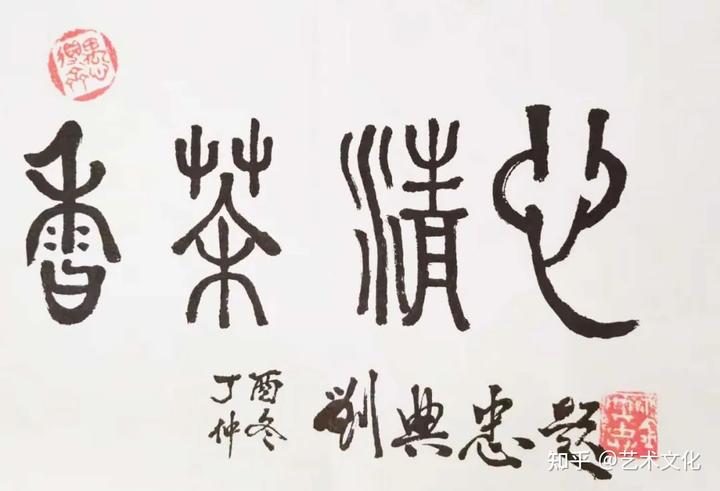 心清茶香
丁酉
仲冬
劉典忠题
知乎 @艺术文化